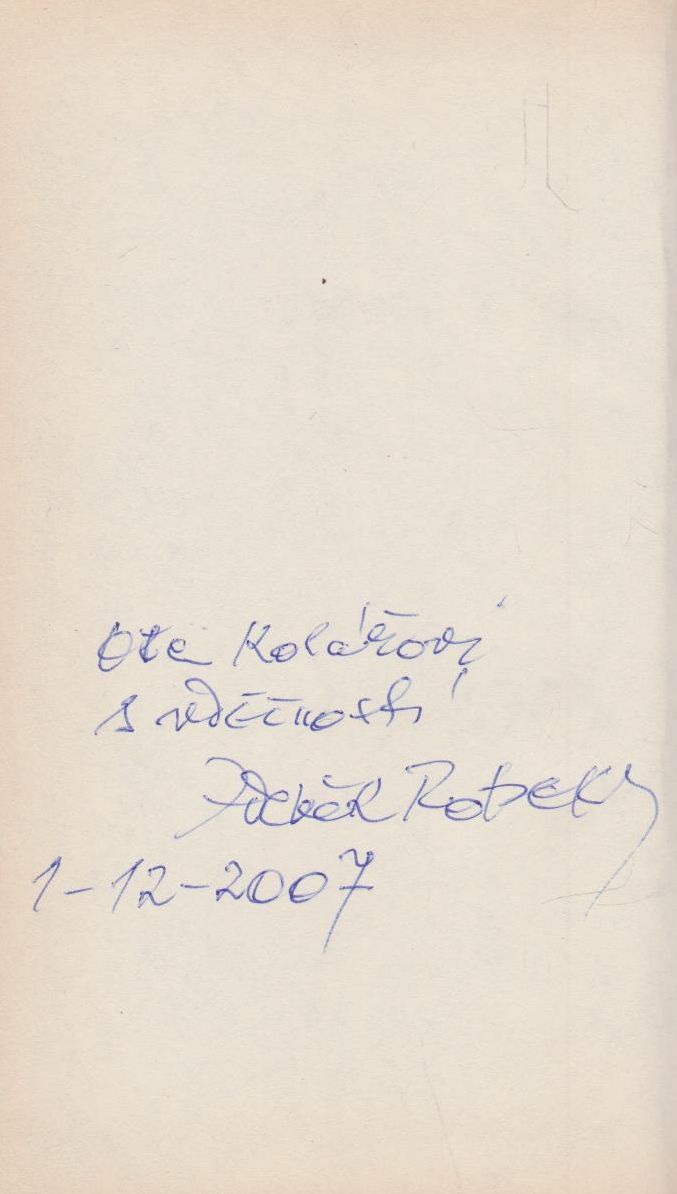 Ota Kolářovi
s vděčností
Zdeněk Rotrekl
1-12-2007